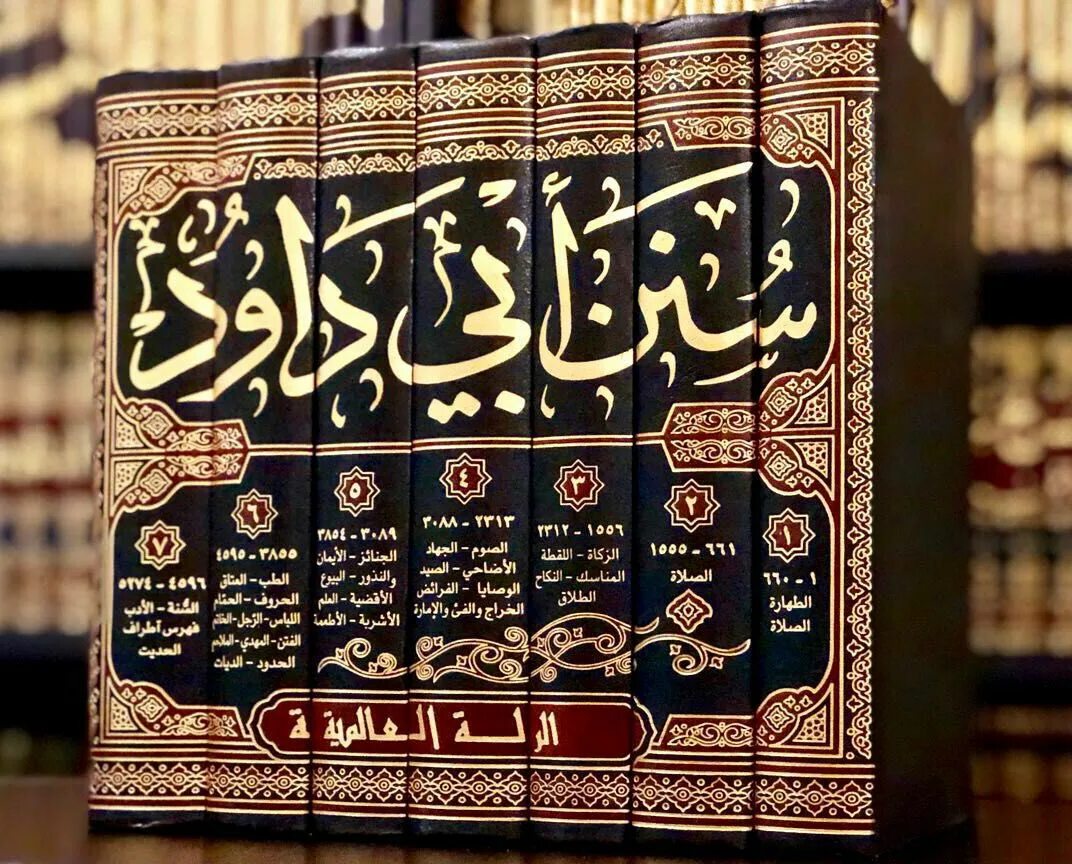 سُنَن أَبِي دَاوُد
١
١ - ٦٦٠
الطهارة
الصلاة
٢
٦٦١ - ١٥٥٥
الصلاة
٣
١٥٥٦ - ٢٣١٢
الزكاة - اللقطة
المناسك - النكاح
الطلاق
٤
٢٣١٣ - ٣٠٨٨
الصوم - الجهاد
الأضاحي - الصيد
الوصايا - الفرائض
الخراج والفئ والإمارة
٥
٣٠٨٩ - ٣٨٥٤
الجنائز - الأيمان
والنذور - البيوع
الأقضية - العلم
الأشربة - الأطعمة
٦
٣٨٥٥ - ٤٥٩٥
الطب - العتاق
الحروف - الحمّام
اللباس - الترجل - الخاتم
الفتن - المهدي - الملاحم
الحدود - الديات
٧
٤٥٩٦ - ٥٢٧٤
السُّنة - الأدب
فهرس أطراف
الحديث
العالمية